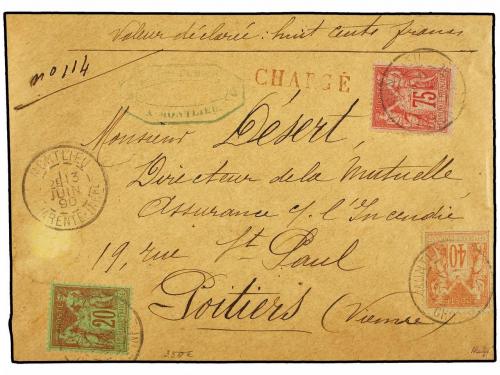 Valeur déclarée: huit cents francs
no 114
A MONTLIEU
CHARGÉ
75
Monsieur Désert,
Directeur de la Mutuelle,
Assurance c/. l'Incendie
19, rue St Paul
Poitiers (Vienne)
MONTLIEU
13
JUIN
90
40
20
350€